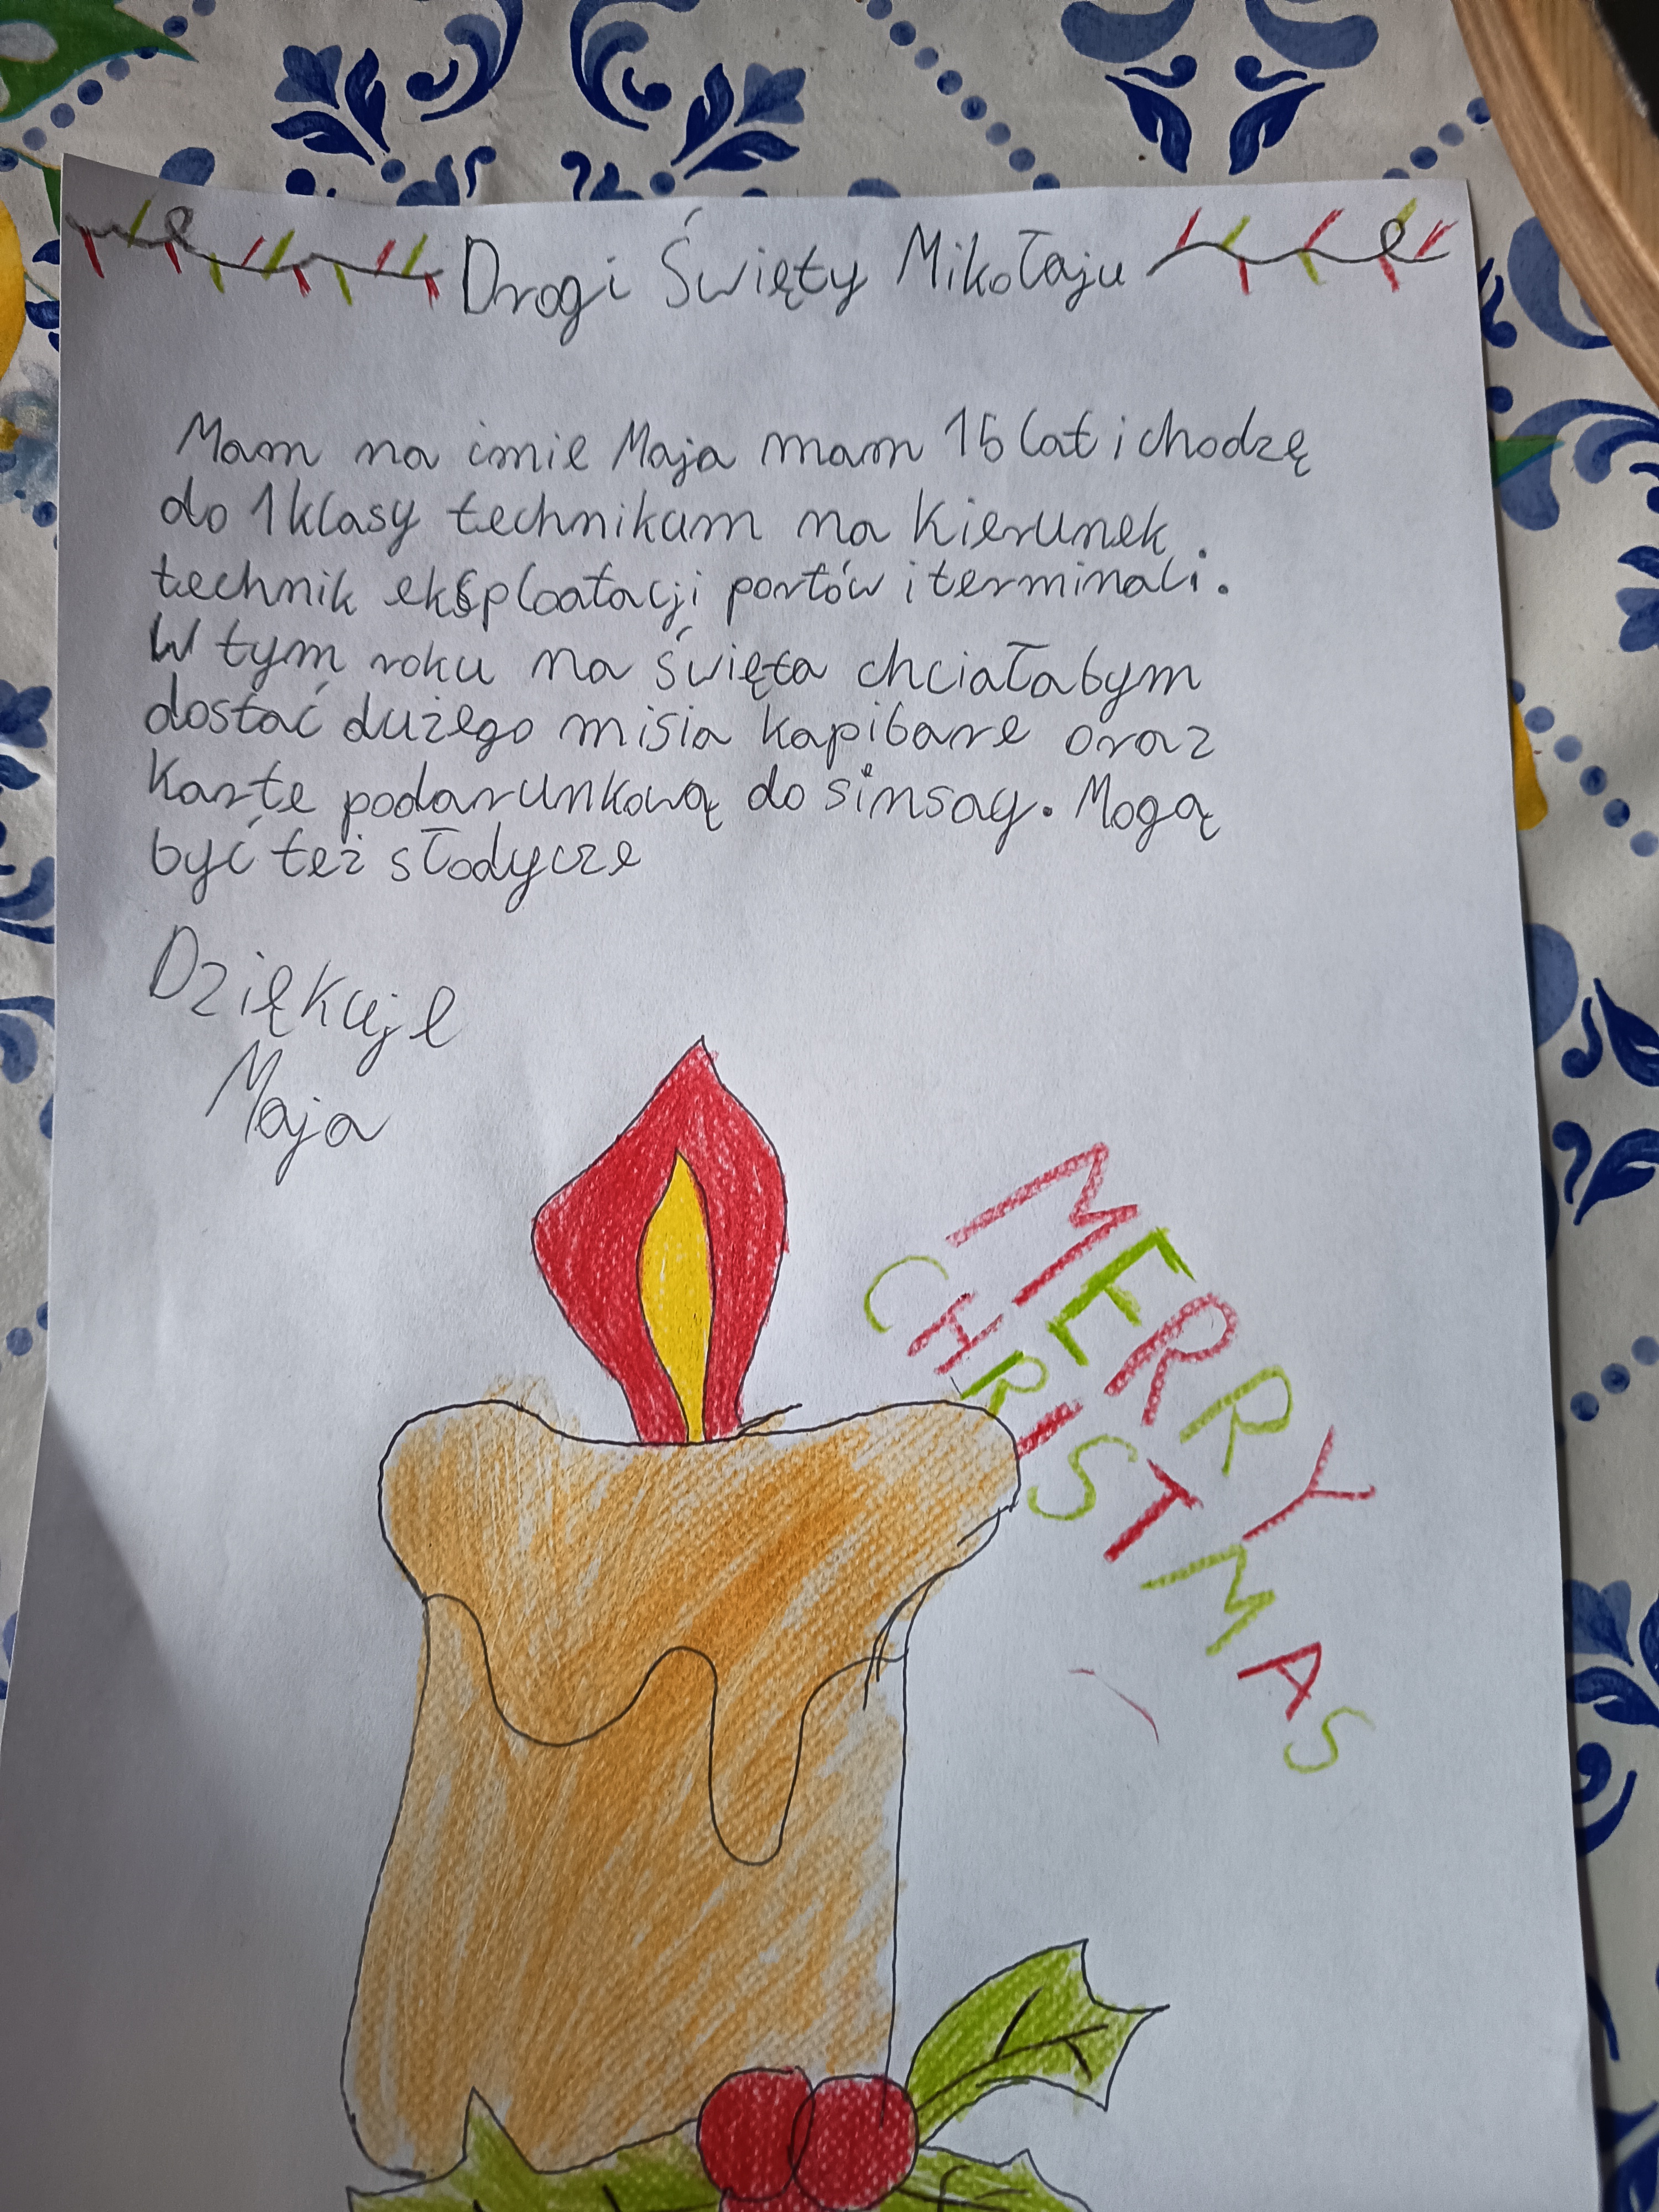 Drogi Święty Mikołaju
Mam na imie Maja mam 15 lat i chodzę
do 1 klasy technikum na kierunek
technik eksploatacji portów i terminali.
W tym roku na święta chciałabym
dostać dużego misia kapibare oraz
karte podarunkową do sinsay. Mogą
być też słodycze
Dziękuje
Maja
MERRY
CHRISTMAS